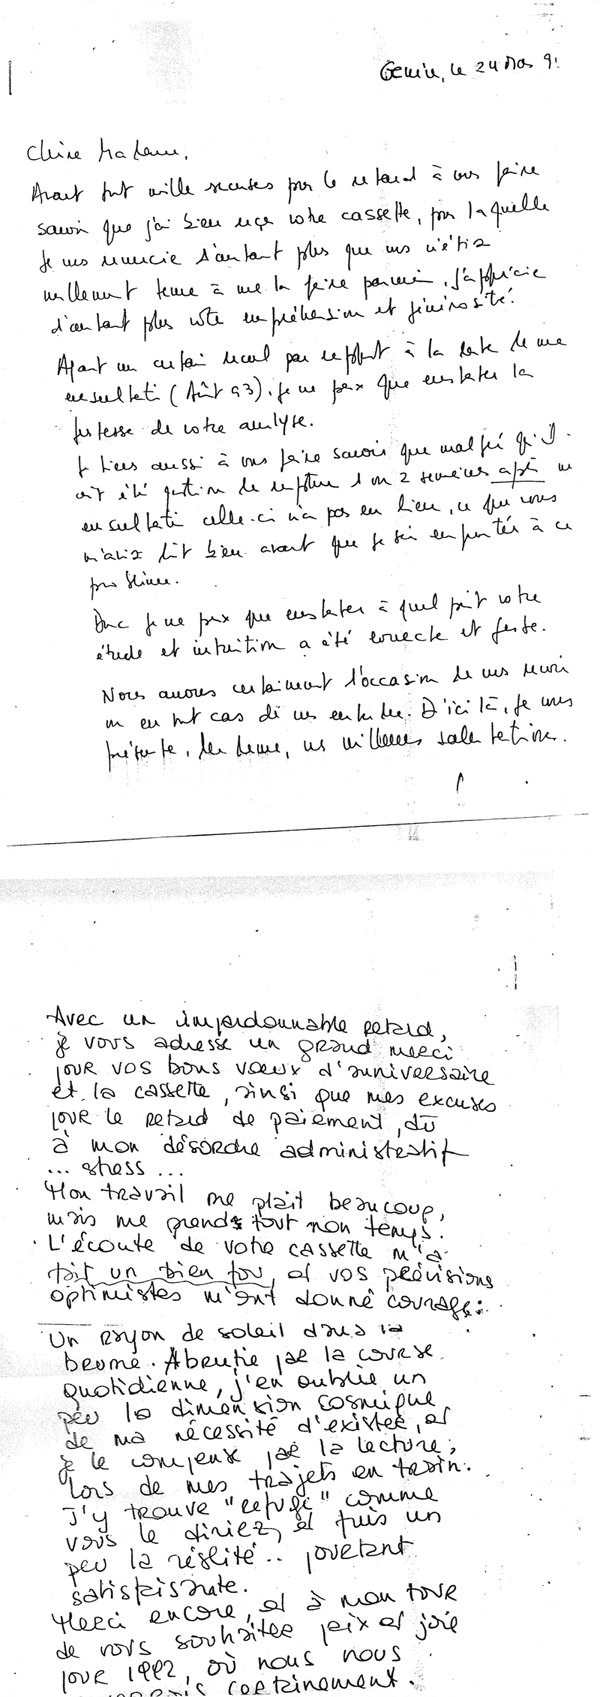 Genève, le 24 Mars 9
Chère Madame,
Avant tout mille excuses pour le retard à vous faire
savoir que j'ai bien reçu votre cassette, pour laquelle
je vous remercie d'autant plus que vous n'étiez
nullement tenue à me la faire parvenir. J'apprécie
d'autant plus votre compréhension et générosité.
Ayant un certain recul par rapport à la date de ma
consultation (Août 93), je ne peux que constater la
justesse de votre analyse.
Je tiens aussi à vous faire savoir que malgré qu'il
ait été question de rupture 1 ou 2 semaines après ma
consultation celle-ci n'a pas eu lieu, ce que vous
m'aviez dit bien avant que je sois confrontée à ce
problème.
Donc je ne peux que constater à quel point votre
étude et intuition a été correcte et juste.
Nous aurons certainement l'occasion de nous revoir
ou en tout cas de nous entendre. D'ici là, je vous
présente, Madame, mes meilleures salutations.
Avec un impardonnable retard,
je vous adresse un grand merci
pour vos bons vœux d'anniversaire
et la cassette, ainsi que mes excuses
pour le retard de paiement, dû
à mon désordre administratif
... stress ...
Mon travail me plait beaucoup,
mais me prends tout mon temps.
L'écoute de votre cassette m'a
fait un bien fou, et vos prévisions
optimistes m'ont donné courage:
Un rayon de soleil dans la
brume. Abrutie par la course
quotidienne, j'en oublie un
peu la dimension cosmique
de ma nécessité d'exister, et
je le compense par la lecture,
lors de mes trajets en train.
J'y trouve "refuge" comme
vous le diriez, et fuis un
peu la réalité.. pourtant
satisfaisante.
Merci encore, et à mon tour
de vous souhaiter paix et joie
pour 1992, où nous nous
certainement.